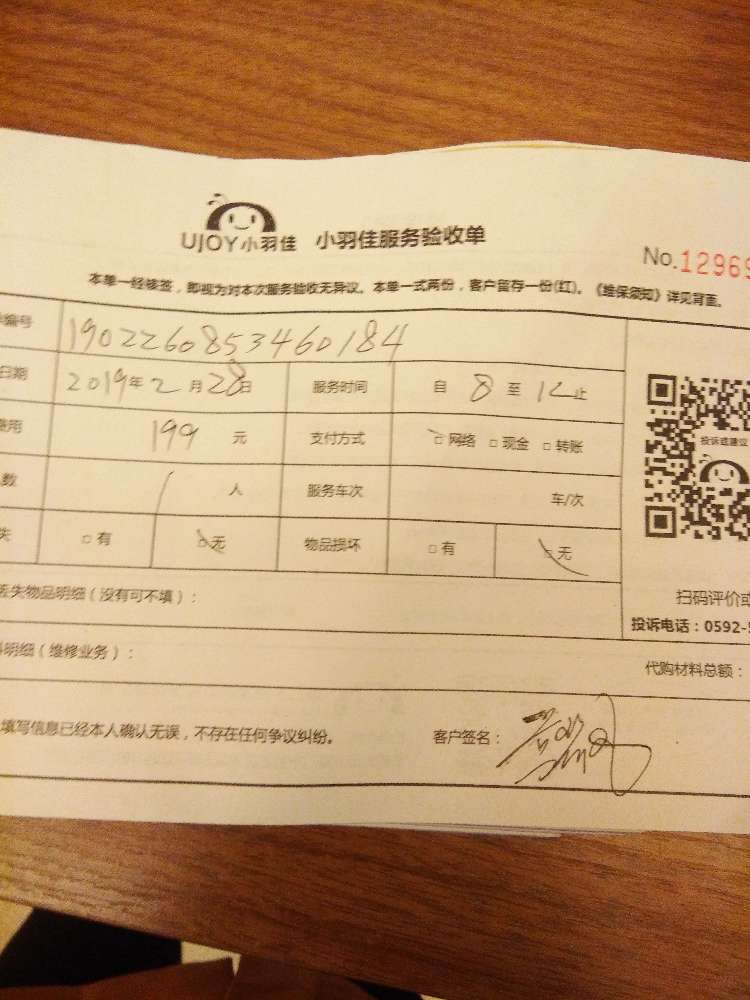 UJOY小羽佳 小羽佳服务验收单
No.12969
本单一经修签，即视为对本次服务验收无异议。本单一式两份，客户留存一份(红)。《维保须知》详见背面。
编号 1902260853460184
日期 2019年2月28日 服务时间 自 8 至 12 止
费用 199 元 支付方式 □网络 □现金 □转账
数 1 人 服务车次 车/次
失 □有 □无 物品损坏 □有 □无
投诉或建议
扫码评价或
投诉电话：0592-5
丢失物品明细（没有可不填）：
料明细（维修业务）： 代购材料总额：
填写信息已经本人确认无误，不存在任何争议纠纷。 客户签名：